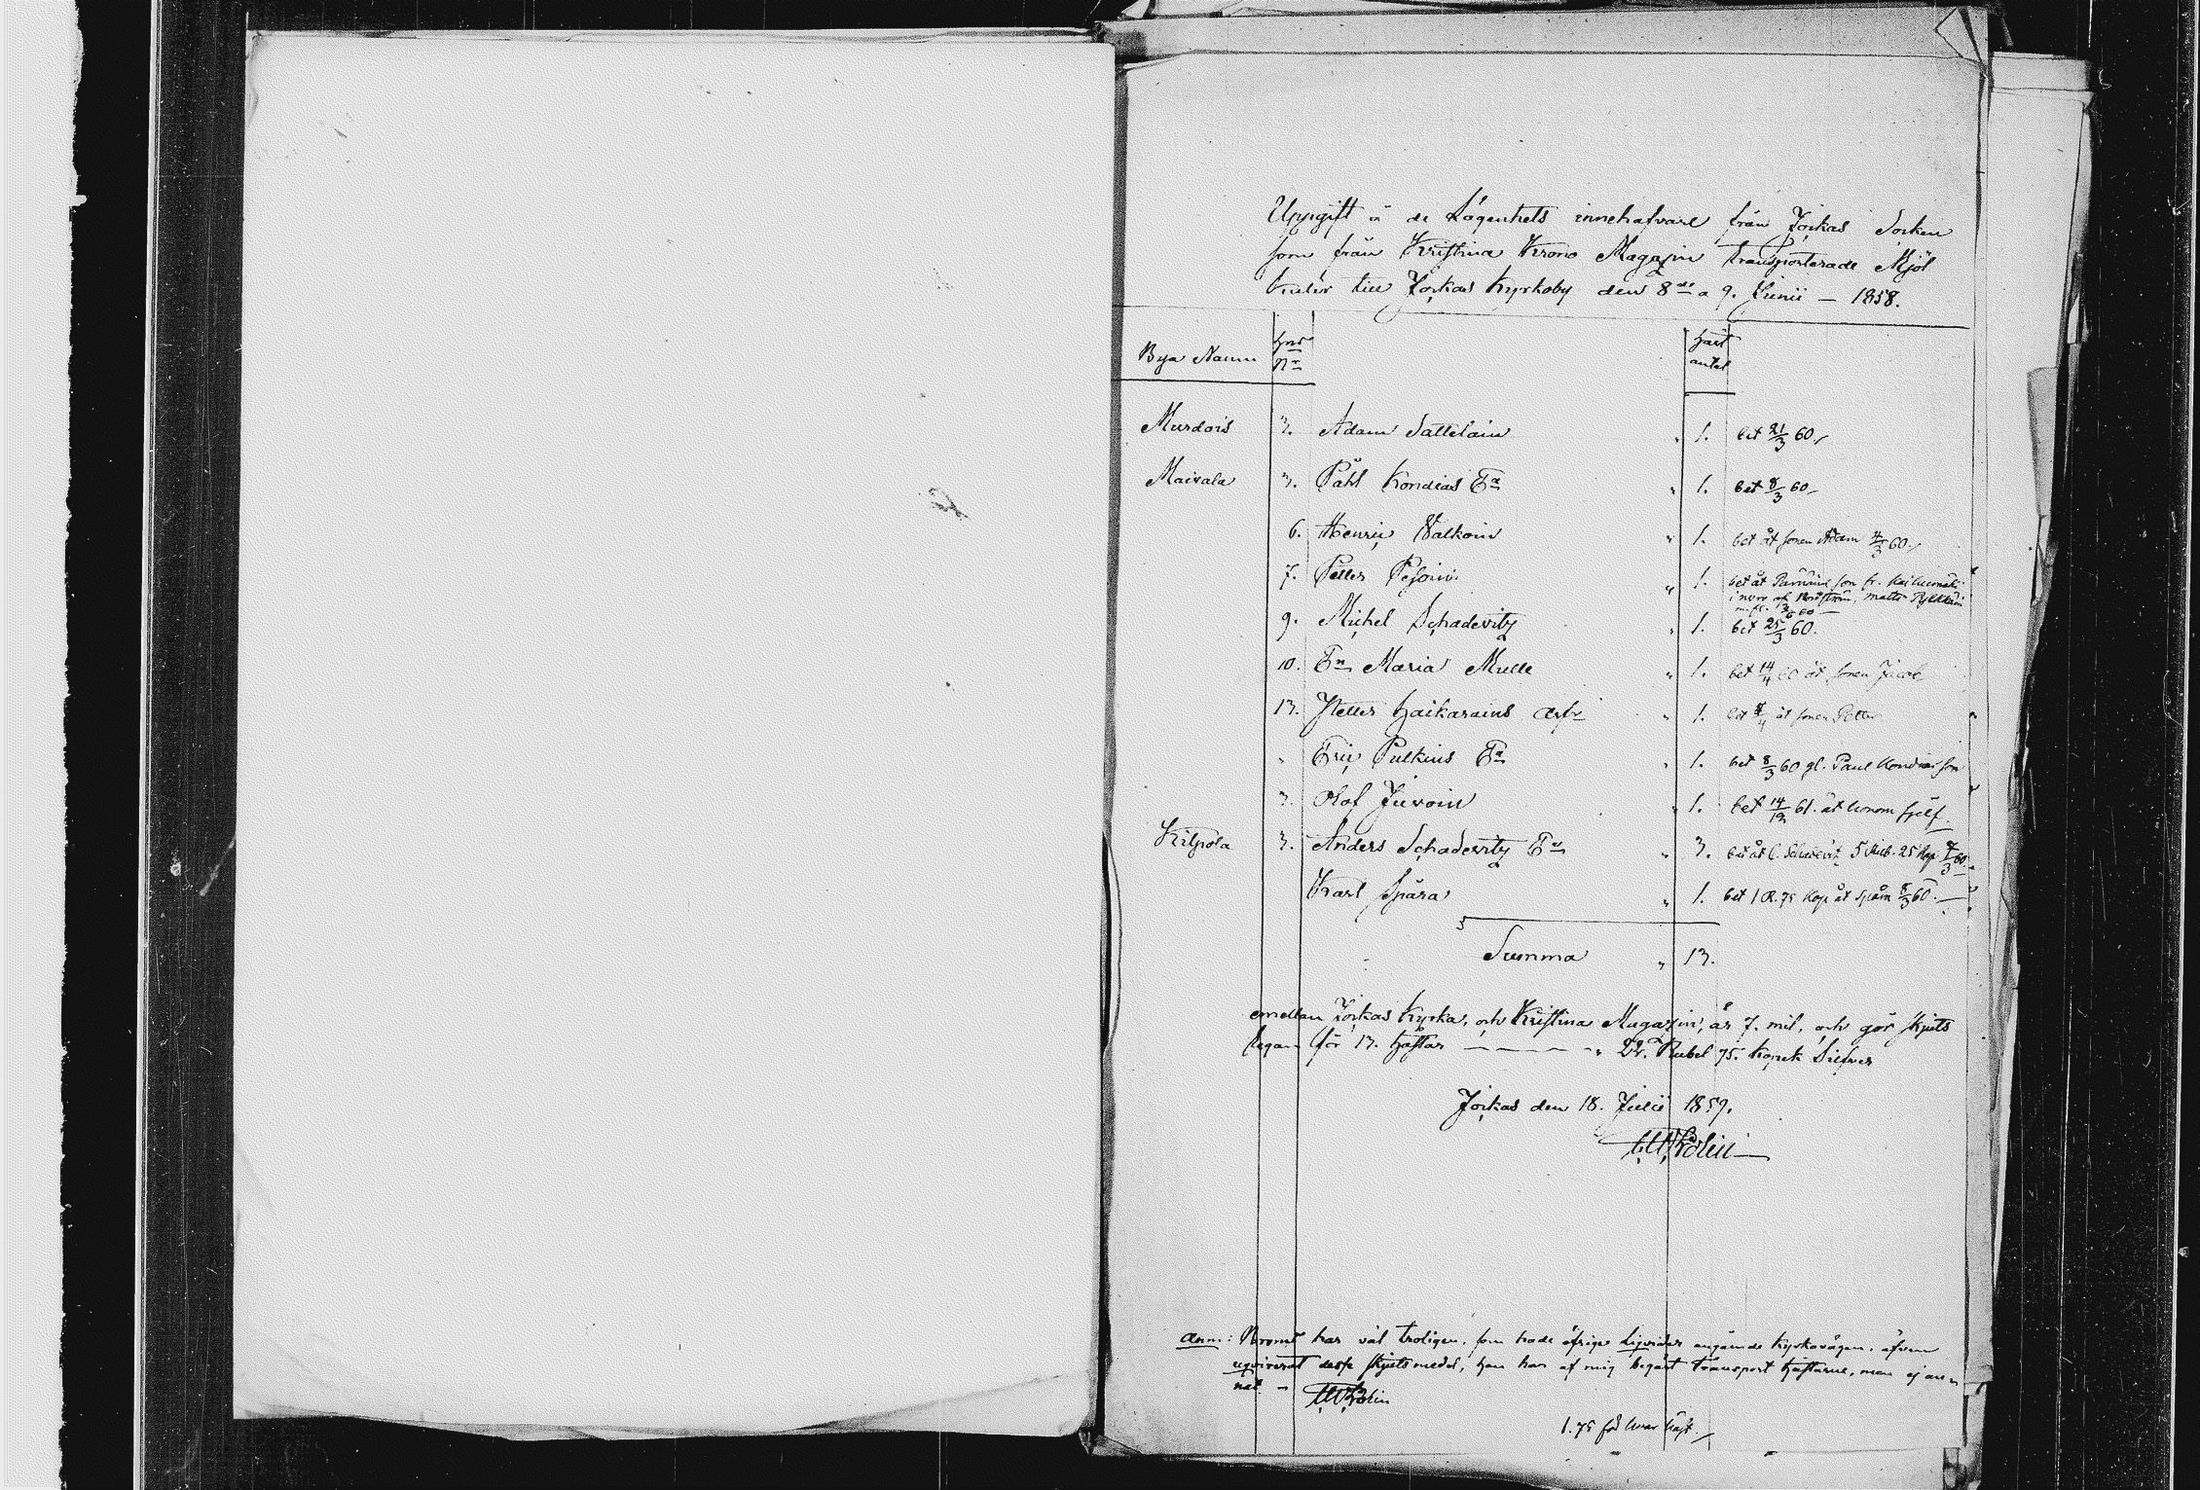 Uppgift å de Lägenhets innehafvare från Jockas Socken
som från Kristina Krono Magazin transporterade Mjöl
till Jockas Kyrkoby den 8de a 9. Junii — 1858.
Bya Namn Hns No Häst antal
Murdois 3. Adam Sattelain " 1. bet 21/3 60
Maivala 3. Påhl Kondias Ea " 1. bet 8/3 60
6. Henric Walkoin " 1. bet åt sonen Adam 60.
7. Petter Pesoin " 1. bet åt son fr.
Matts
m. fl. 60
9. Michel Schadevitz " 1. bet 25/3 60.
10. En Maria Mulle " 1. bet 14/4 60 åt sonen Jacob
13. Petter Haikarains Arfv " 1. bet åt sonen Petter
" Eric Pulkins Ea " 1. bet 8/3 60 gl. Paul Kondias son
3. Olof Juvoin " 1. bet 14/12 61. åt honom sjelf.
Kilpola 3. Anders Schadevitz En " 3. bet åt C. Schadevitz 5 Rub. 25 Kop 60
Karl Spåra " 1. bet 1 R. 75 Kop åt 8/3 60.
Summa " 13.
emellan Jockas Kyrka, och Kristina Magazin, är 7. mil, och gör skjuts
legan för 13. hästar — " 22. Rubel 75. kopek Silfver
Jockas den 18. Julii 1859.
Anm: har väl troligen, som hade öfrige liqvider angående Kyrkovägen, äfven
reqvirerat desse skjutsmedel, han har af mig begärt transport hästarne, men ej an-
nat —
1.75 för hvar häst.